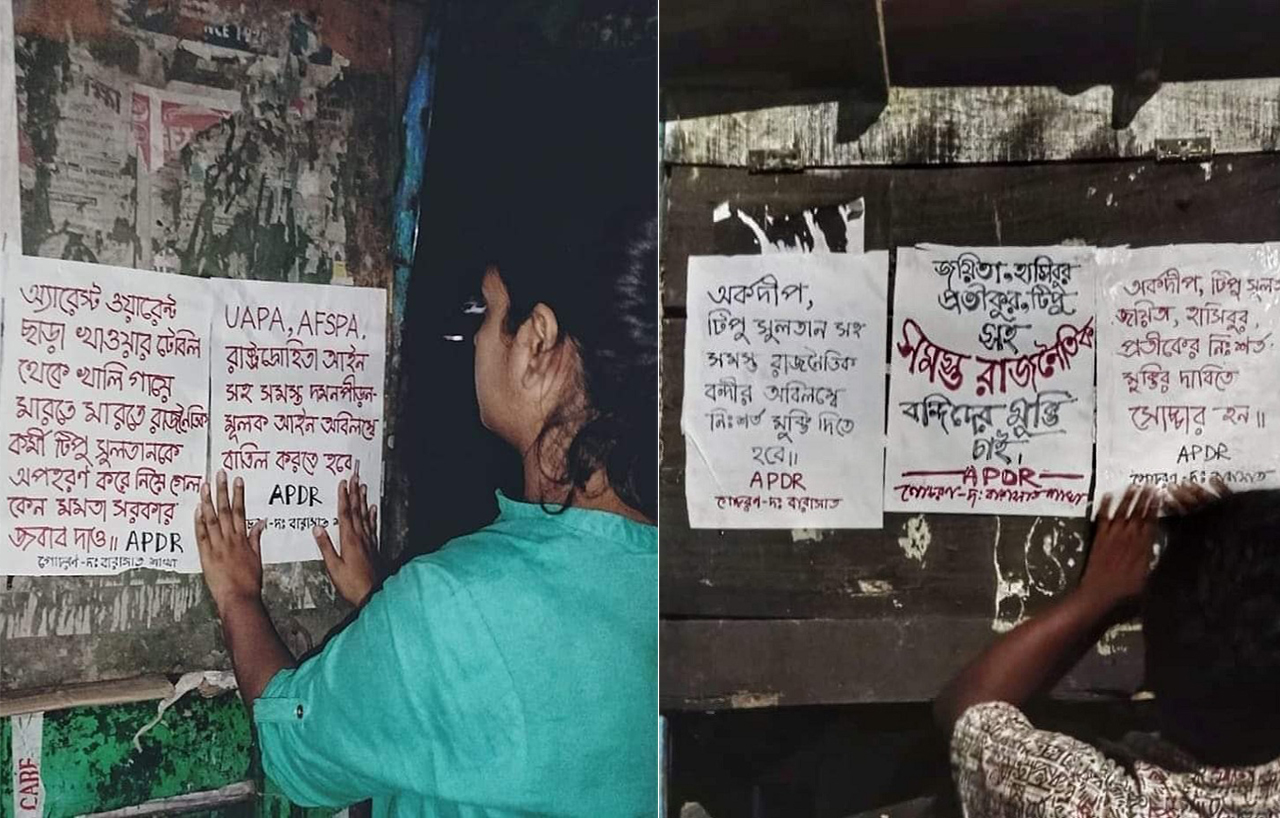 NCE 19
ক্ষা
অ্যারেস্ট ওয়ারেন্ট
ছাড়া খাওয়ার টেবিল
থেকে খালি গায়ে
মারতে মারতে রাজনৈতিক
কর্মী টিপু সুলতানকে
অপহরণ করে নিয়ে গেল
কেন মমতা সরকার
জবাব দাও॥ APDR
গোচরণ-দঃ বারাসাত শাখা
UAPA, AFSPA,
রাষ্ট্রদ্রোহিতা আইন
সহ সমস্ত দমনপীড়ন-
মূলক আইন অবিলম্বে
বাতিল করতে হবে॥
APDR
গোচরণ-দঃ বারাসাত শ
CARE
অর্কদীপ,
টিপু সুলতান সহ
সমস্ত রাজনৈতিক
বন্দীর অবিলম্বে
নিঃশর্ত মুক্তি দিতে
হবে॥
APDR
গোচরণ-দঃ বারাসাত
জয়িতা, হাসিবুর
প্রতীকুর, টিপু
সহ
সমস্ত রাজনৈতিক
বন্দিদের মুক্তি
চাই।
APDR
গোচরণ-দঃ বারাসাত শাখা
অর্কদীপ, টিপু সুলত
জয়িতা, হাসিবুর,
প্রতীকের নিঃশর্ত
মুক্তির দাবিতে
সোচ্চার হন॥
APDR
গোচরণ-দঃ বারাসাত